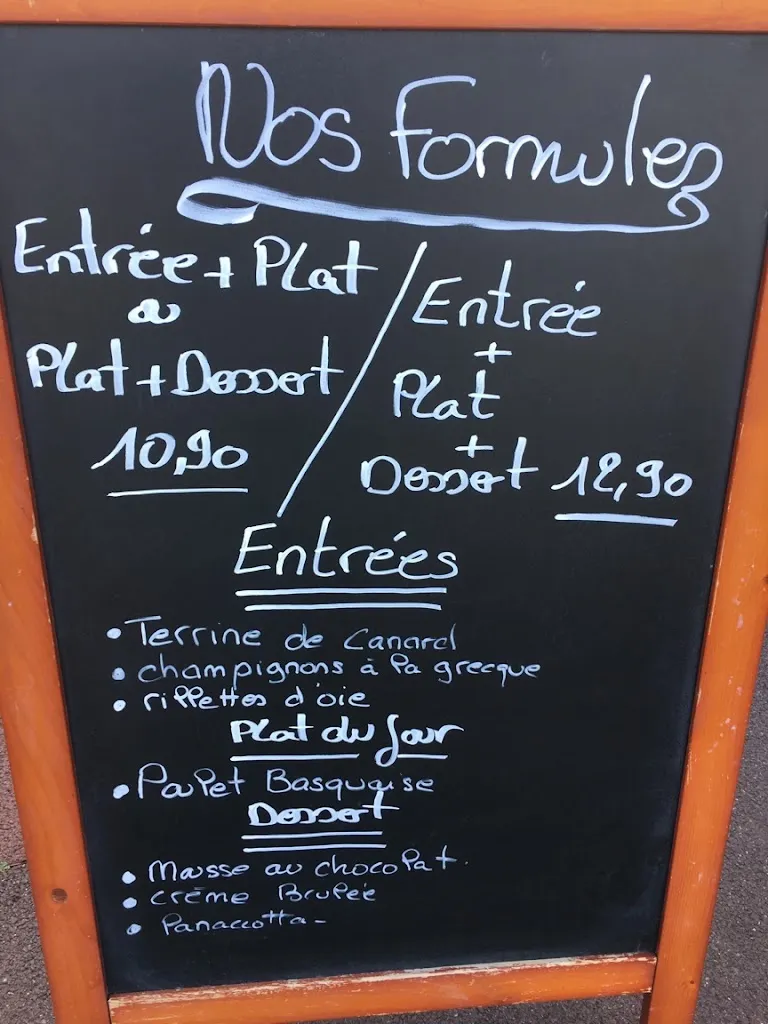 Nos Formules
Entrée + Plat
ou
Plat + Dessert
10,90
Entrée
+
Plat
+
Dessert 12,90
Entrées
• Terrine de Canard
• champignons à la grecque
• rillettes d'oie
Plat du Jour
• Poulet Basquaise
Dessert
• Mousse au chocolat.
• crème Brulée
• Panacotta -